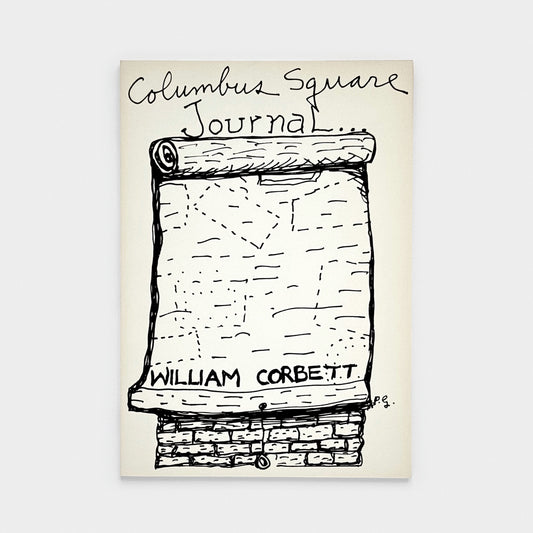 Columbus Square
Journal...
WILLIAM CORBETT
P.G.